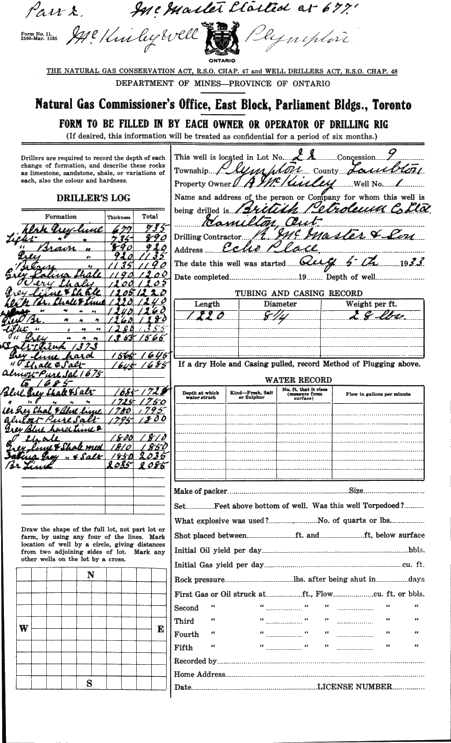 Part 2. McMaster Started at 677'
Form No. 11.
2500-Mar. 1933
McKinley Well
Plympton
ONTARIO
THE NATURAL GAS CONSERVATION ACT, R.S.O. CHAP. 47 and WELL DRILLERS ACT, R.S.O. CHAP. 48
DEPARTMENT OF MINES—PROVINCE OF ONTARIO
Natural Gas Commissioner's Office, East Block, Parliament Bldgs., Toronto
FORM TO BE FILLED IN BY EACH OWNER OR OPERATOR OF DRILLING RIG
(If desired, this information will be treated as confidential for a period of six months.)
Drillers are required to record the depth of each
change of formation, and describe these rocks
as limestones, sandstone, shale, or variations of
each, also the colour and hardness.
DRILLER'S LOG
Formation Thickness Total
Derk Grey lime 677 735
Light " " 735 890
" Brown " 890 920
Grey " 920 1135
1135 1190
Grey Salina Shale 1190 1200
Shaley 1200 1205
Grey lime & Shale 1205 1220
Shale & Lime 1220 1240
1240 1260
Grey Br. " 1260 1280
Light " " " 1280 1355
" Grey " 1565
1373
Grey lime hard 1565 1645
" Shale & Salt 1645 1685
almost Pure Sal 1675
to 1685
Blue Grey Shale & Salt 1685 1725
" " " " 1725 1750
Grey Shal & Blue lime 1780 1795
almost Pure Salt 1795 1800
Grey Blue hard lime &
Shale 1800 1810
Grey lime & Shale med 1810 1850
Salina Grey " & Salt 1850 2035
Br Lime 2035 2085
Draw the shape of the full lot, not part lot or
farm, by using any four of the lines. Mark
location of well by a circle, giving distances
from two adjoining sides of lot. Mark any
other wells on the lot by a cross.
N
W E
S
This well is located in Lot No. 22 Concession 9
Township Plympton County Lambton
Property Owner A McKinley Well No. 1
Name and address of the person or Company for whom this well is
being drilled is British Petroleum Co Ltd
Hamilton, Ont
Drilling Contractor R. McMaster & Son
Address Echo Place
The date this well was started Aug 5th 1933
Date completed 19 Depth of well
TUBING AND CASING RECORD
Length Diameter Weight per ft.
1220 8¼ 28 lbs.
If a dry Hole and Casing pulled, record Method of Plugging above.
WATER RECORD
Depth at which water struck Kind—Fresh, Salt or Sulphur No. ft. that it rises (measure from surface) Flow in gallons per minute
Make of packer Size
Set Feet above bottom of well. Was this well Torpedoed?
What explosive was used? No. of quarts or lbs.
Shot placed between ft. and ft, below surface
Initial Oil yield per day bbls.
Initial Gas yield per day cu. ft.
Rock pressure lbs. after being shut in days
First Gas or Oil struck at ft., Flow cu. ft. or bbls.
Second " " " " "
Third " " " " "
Fourth " " " " "
Fifth " " " " "
Recorded by
Home Address
Date LICENSE NUMBER